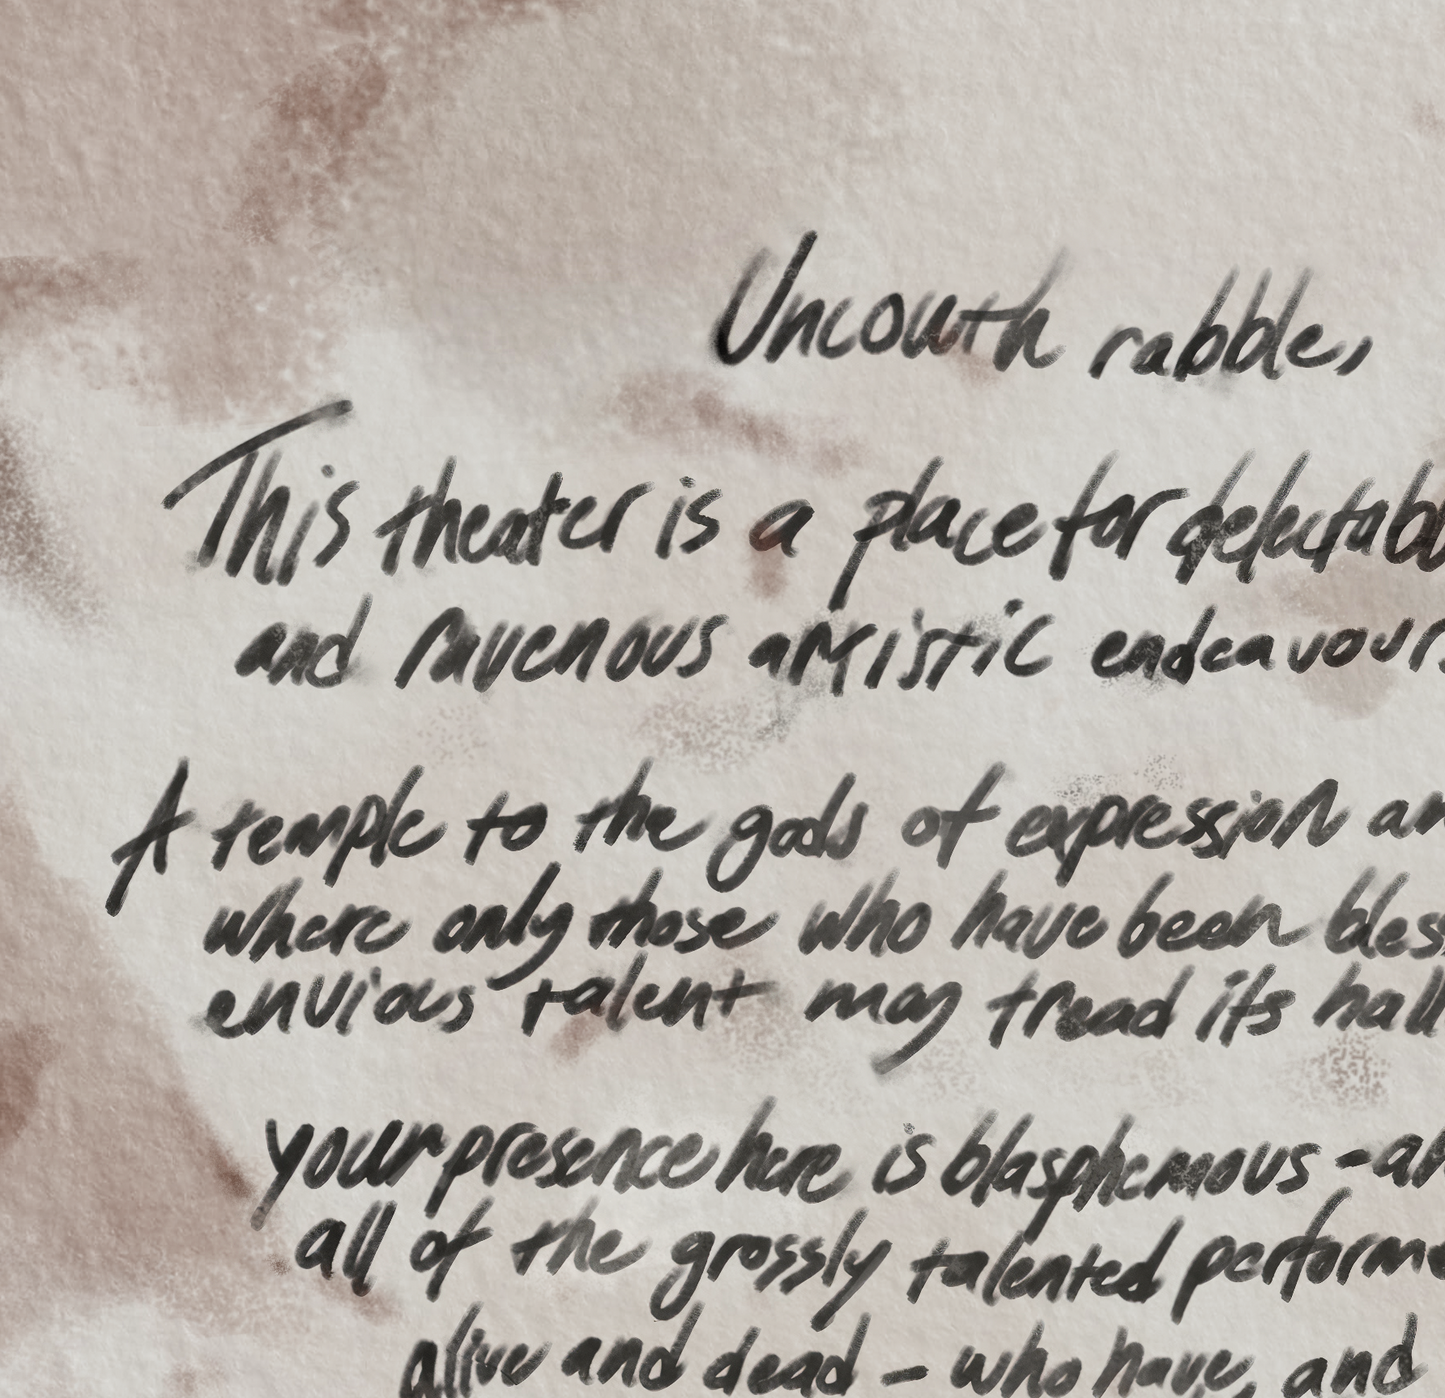 Uncouth rabble,
This theater is a place for delectabl
and ravenous artistic endeavours
A temple to the gods of expression an
where only those who have been bless
envious talent may tread its hall
your presence here is blasphemous - an
all of the grossly talented performe
alive and dead - who have, and